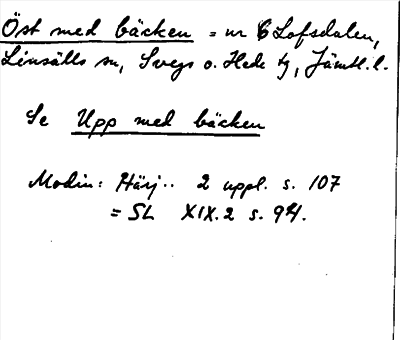 Öst med bäcken = nr 6 Lofsdalen,
Linsälls sn, Svegs o. Hede tg, Jämtl. l.
Se Upp med bäcken
Modin: Härj.. 2 uppl. s. 107
= SL XIX.2 s. 94.